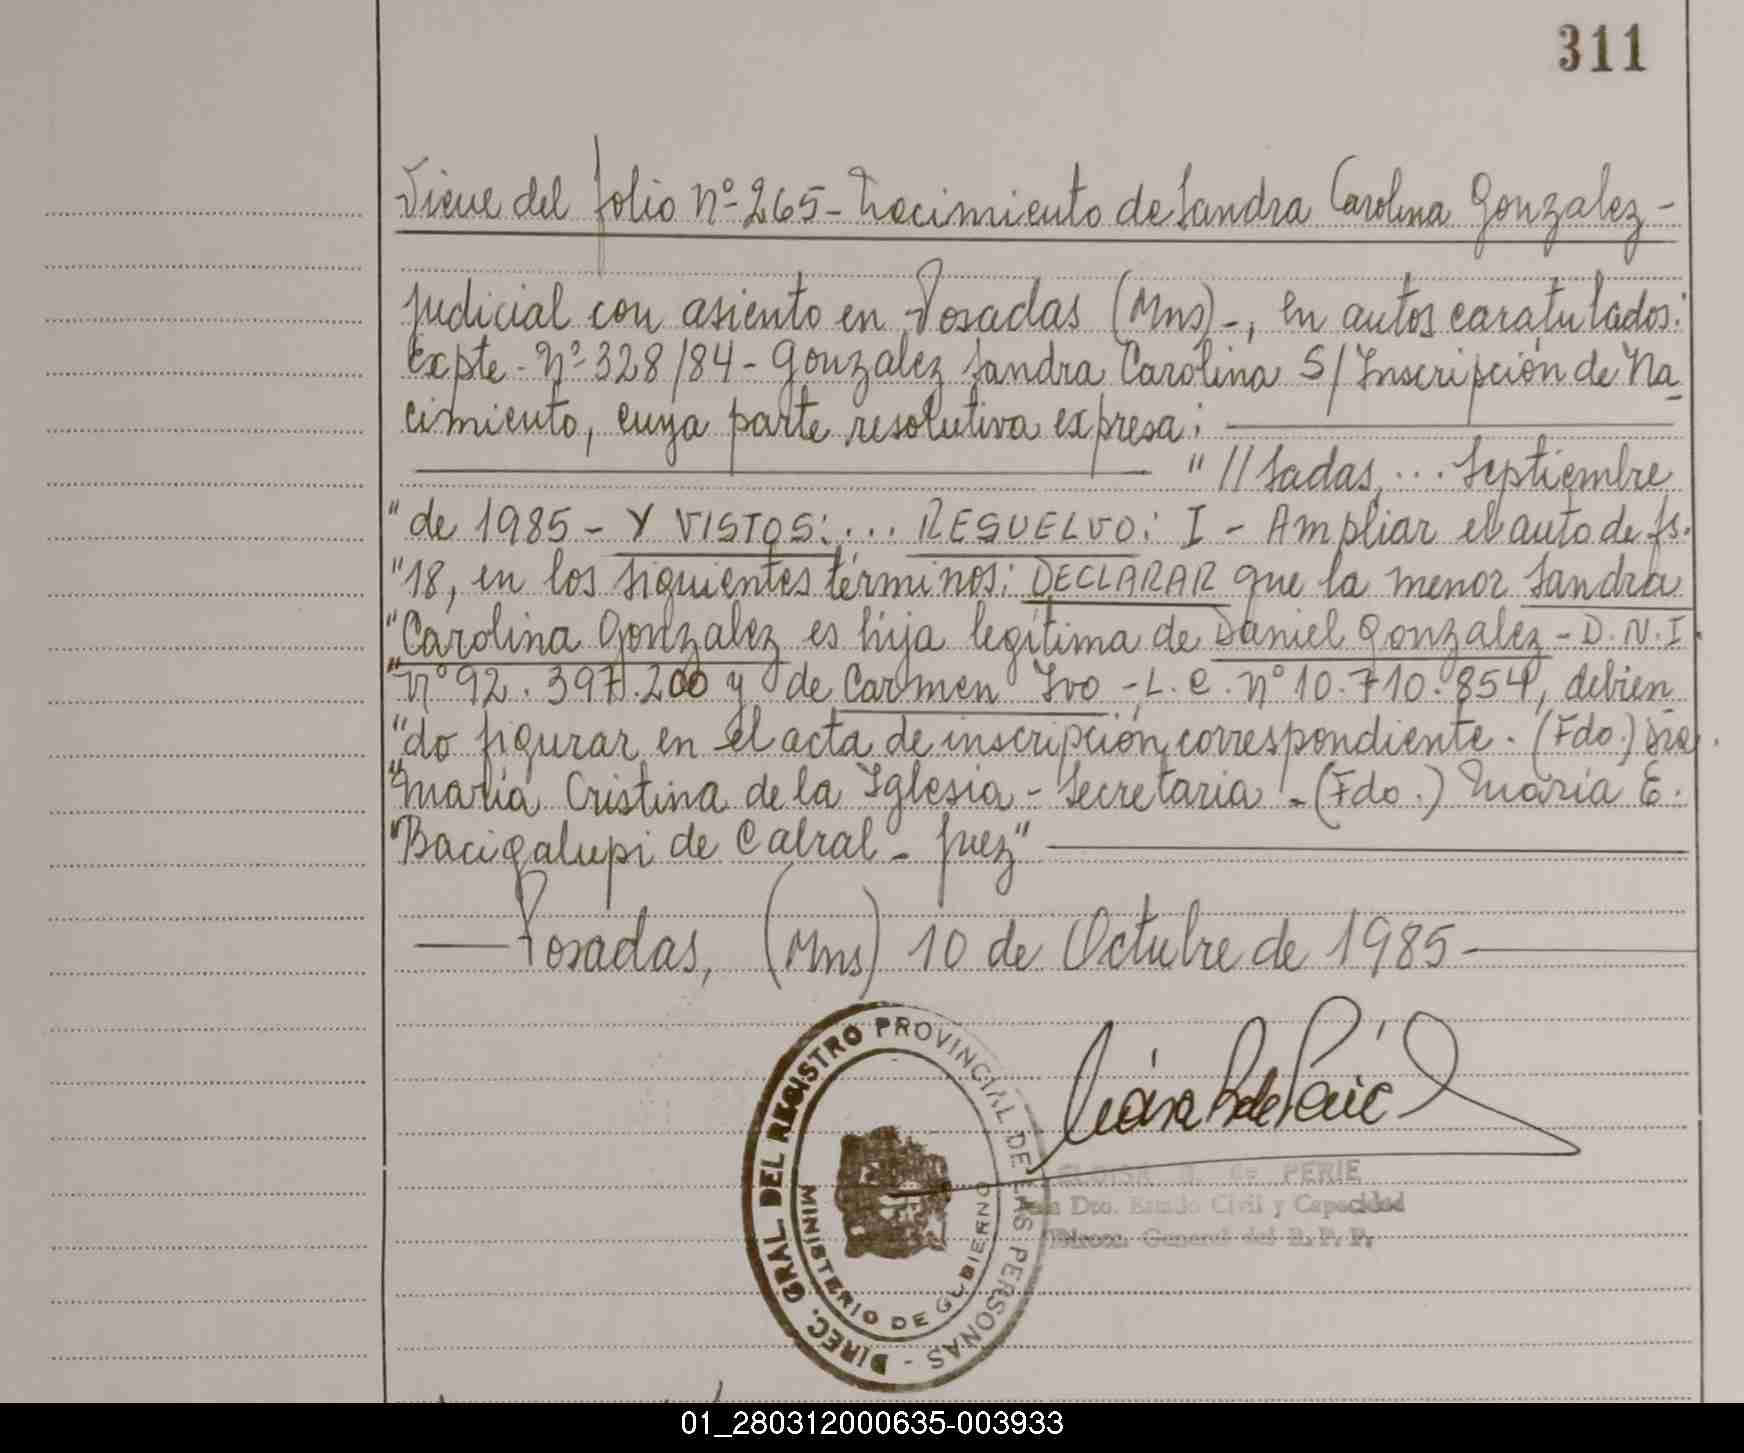 311
Viene del folio Nº 265 - Nacimiento de Sandra Carolina Gonzalez -
Judicial con asiento en Posadas (Mns) -, en autos caratulados:
Expte - Nº 328/84 - Gonzalez Sandra Carolina S/ Inscripción de Na
cimiento, cuya parte resolutiva expresa:
" //sadas, ... Septiembre
" de 1985 - Y VISTOS: ... RESUELVO: I - Ampliar el auto de fs.
" 18, en los siguientes términos: DECLARAR que la menor Sandra
" Carolina Gonzalez es hija legítima de Daniel Gonzalez - D.N.I.
" Nº 92.397.200 y de Carmen Ivo - L.C. Nº 10.710.854, debien
" do figurar en el acta de inscripción correspondiente. (Fdo.) Dra.
" María Cristina de la Iglesia - Secretaria - (Fdo.) María E.
" Bacigalupi de Cabral - Juez"
Posadas, (Mns) 10 de Octubre de 1985 -
DIREC. GRAL DEL REGISTRO PROVINCIAL DE LAS PERSONAS -
MINISTERIO DE GOBIERNO
ELOISA R. de PERIE
Dto. Estado Civil y Capacidad
Direcc. General del R. P. P.
01_280312000635-003933